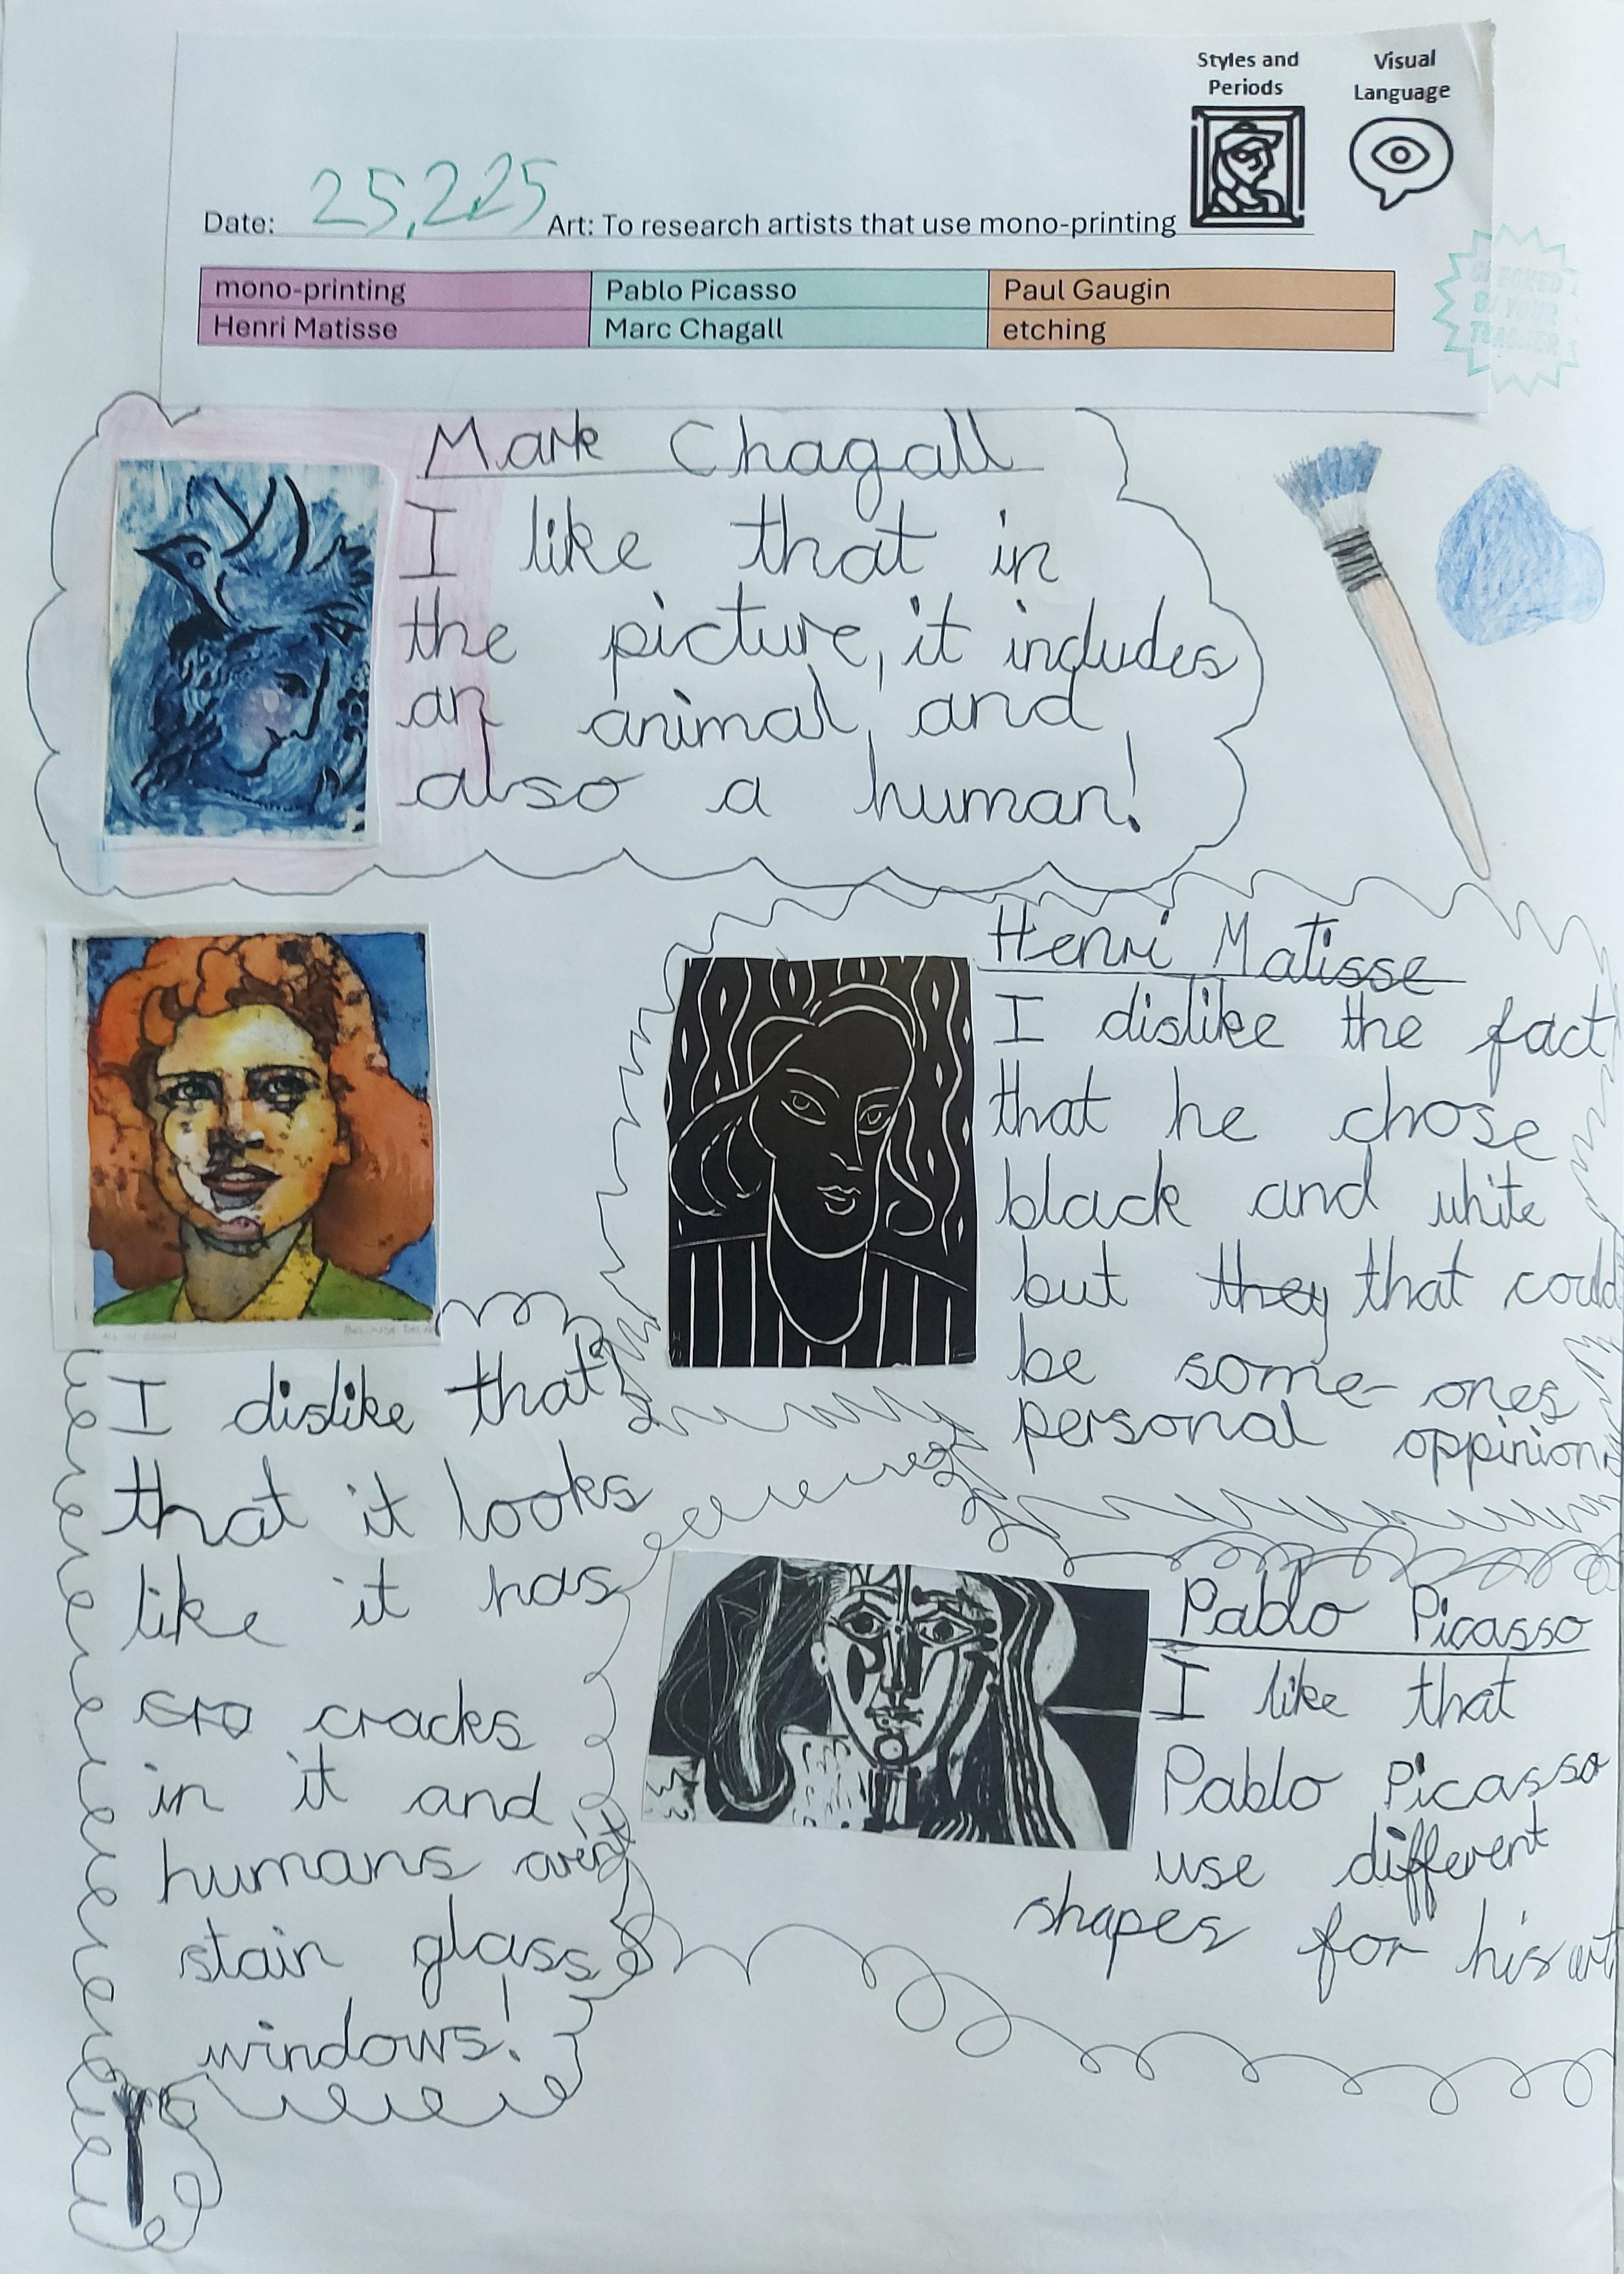 Styles and
Periods
Visual
Language
Date: 25,2,25 Art: To research artists that use mono-printing
mono-printing Pablo Picasso Paul Gaugin
Henri Matisse Marc Chagall etching
CHECKED
BY YOUR
TEACHER
Mark Chagall
I like that in
the picture, it includes
an animal, and
also a human!
Henri Matisse
I dislike the fact
that he chose
black and white
but they that could
be some-ones
personal oppinion
I dislike that
that it looks
like it has
cra cracks
in it and
humans aren't
stain glass
windows!
Pablo Picasso
I like that
Pablo Picasso
use different
shapes for his art